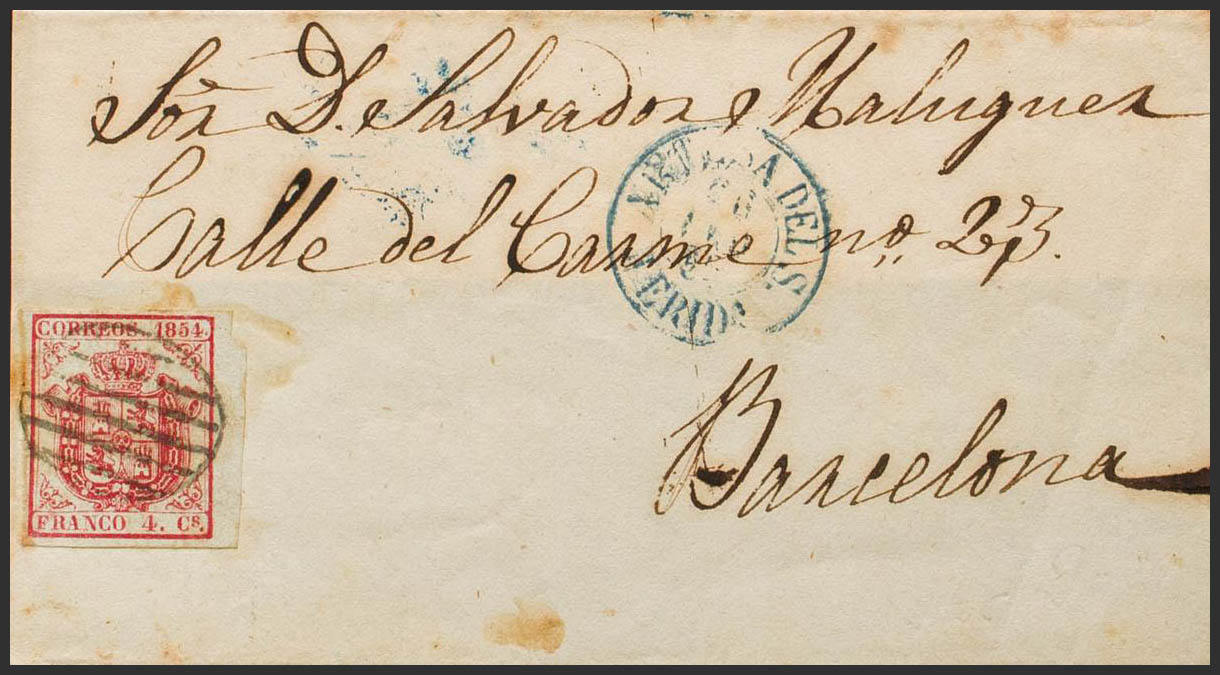 Sor. D. Salvador Maluquer
Calle del Carme no. 23.
ARTESA DEL S
LERIDA
CORREOS 1854.
FRANCO 4. Cs.
Barcelona